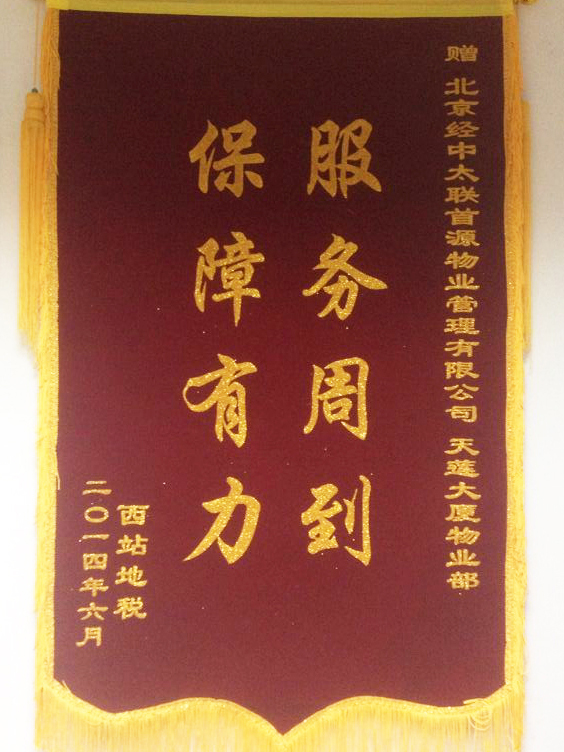 赠 北京经中太联首源物业管理有限公司 天莲大厦物业部
服务周到
保障有力
西站地税
二〇一四年六月